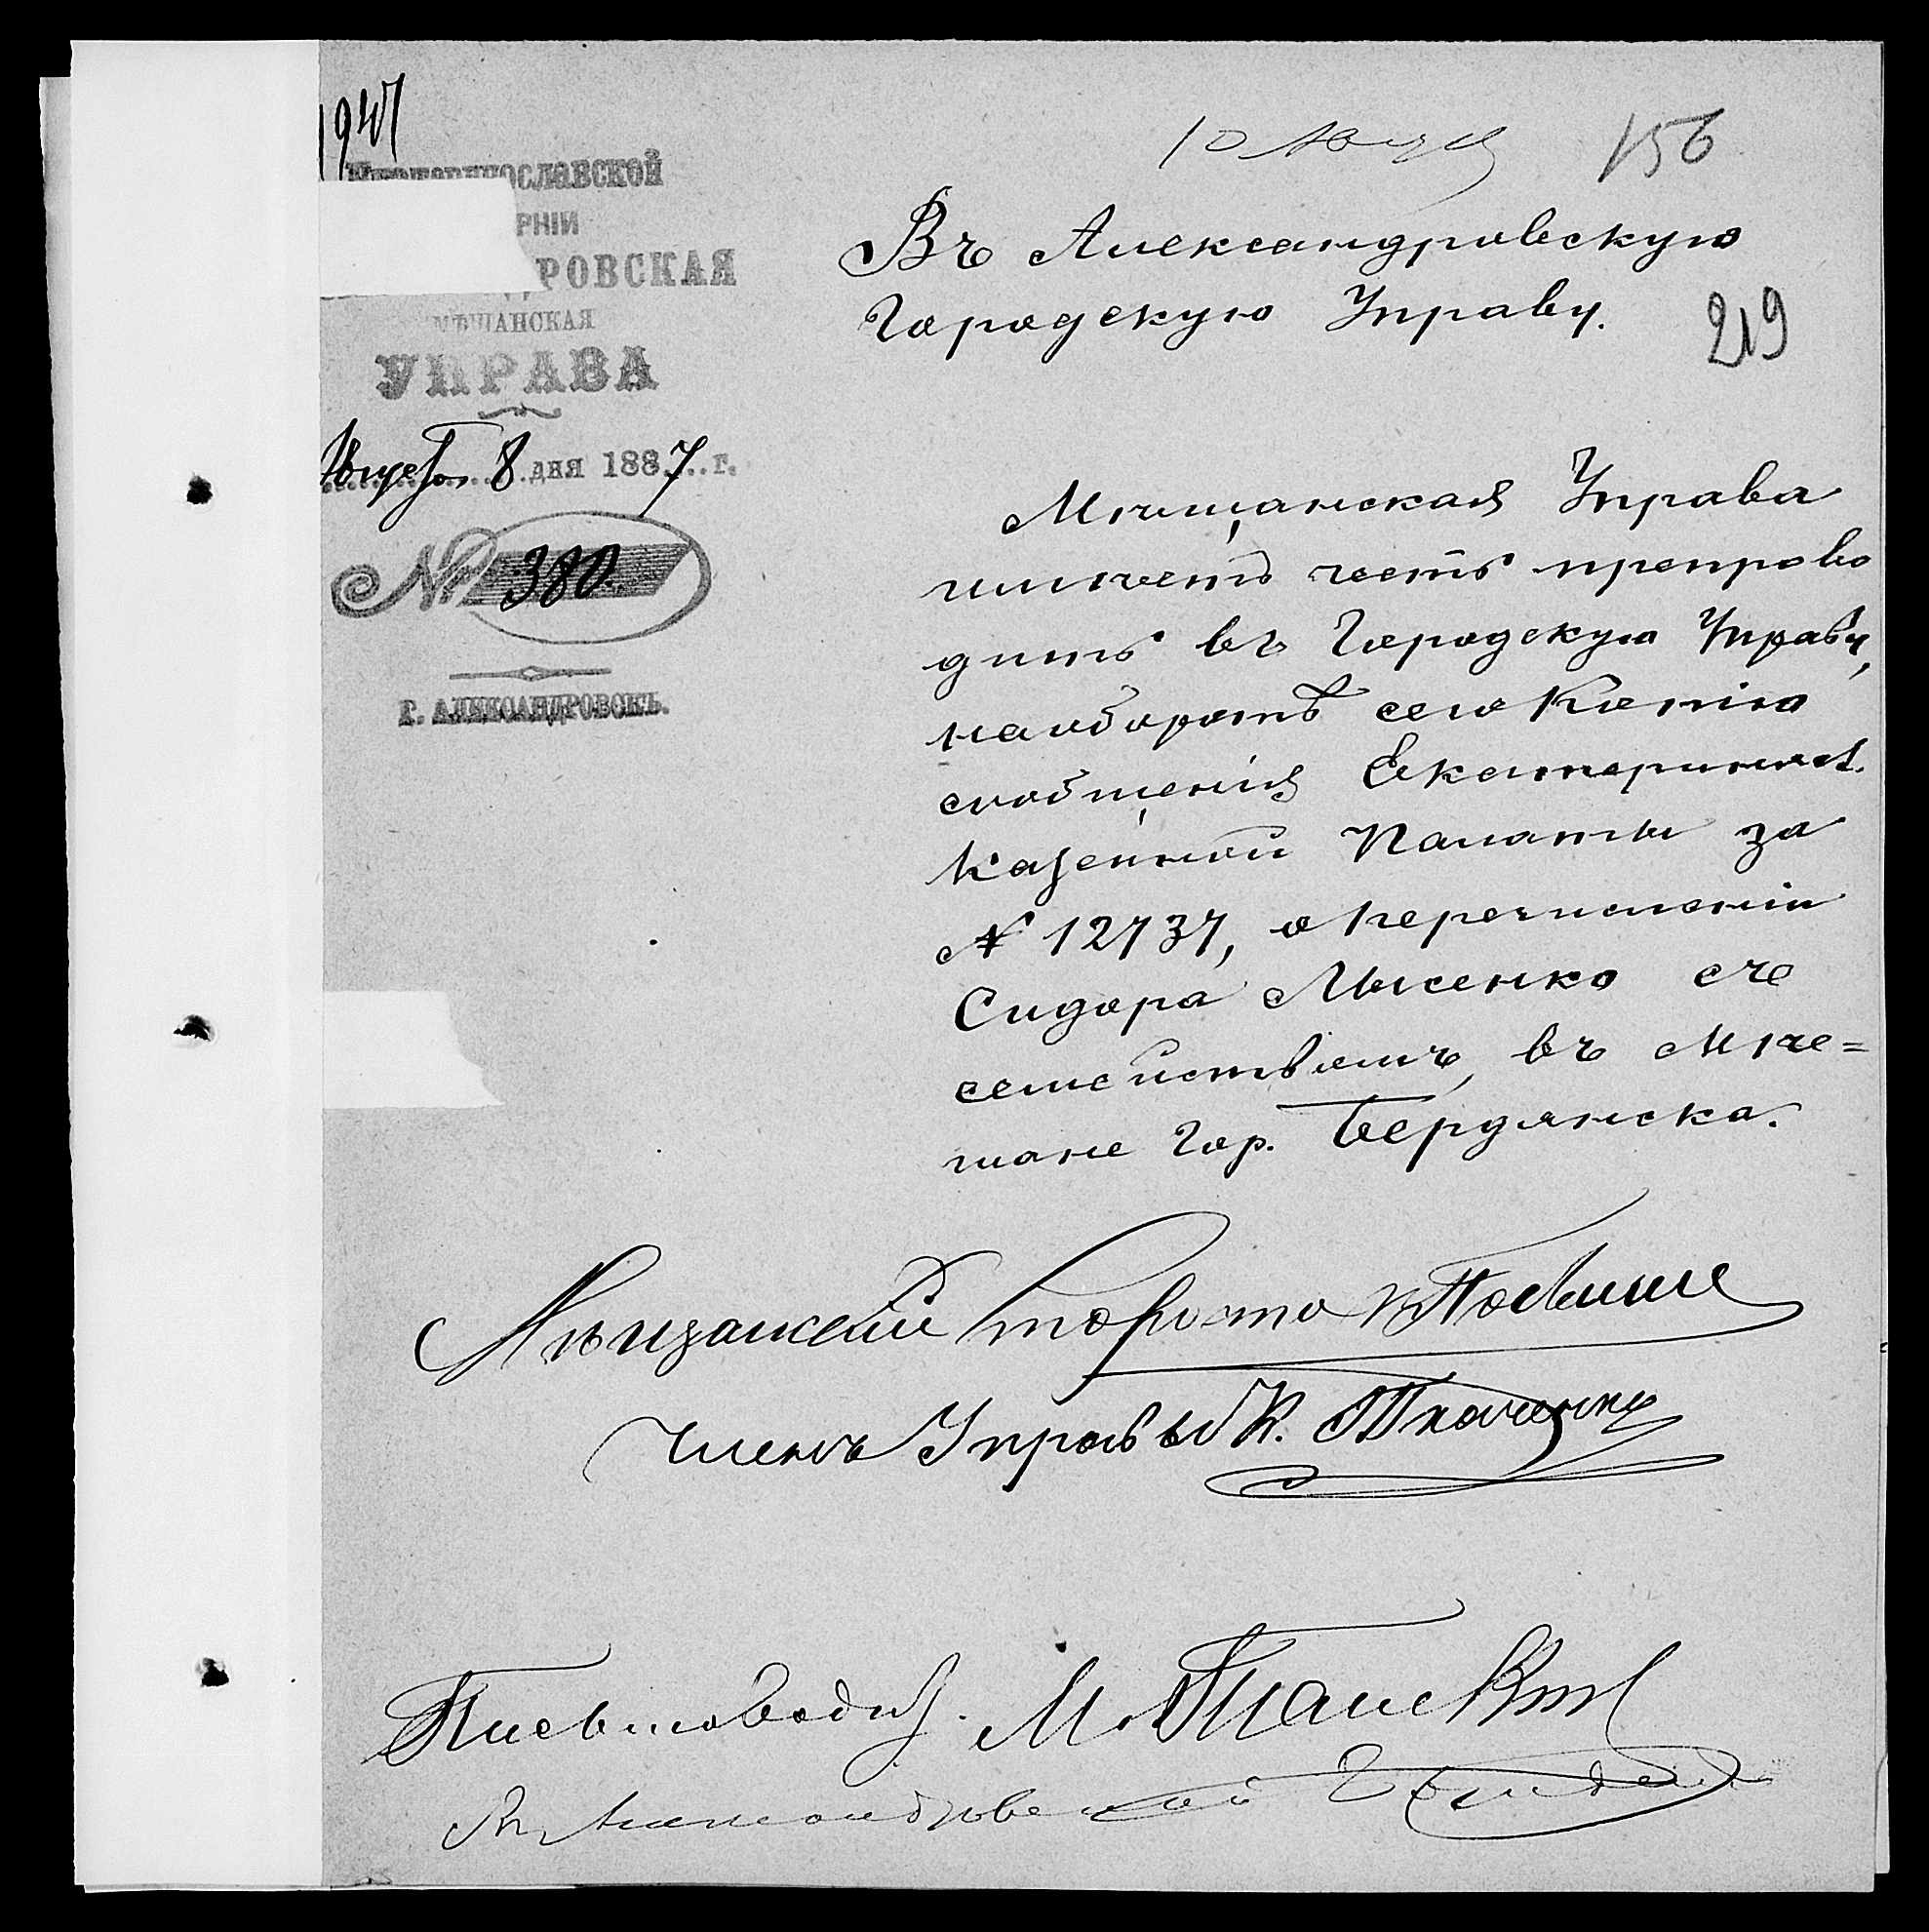 1947
10 Авг
156
Екатеринославской
РНІИ
РОВСКАЯ
МѢЩАНСКАЯ
УПРАВА
Августа 8 дня 1887 г.
№ 380.
Г. АЛЕКСАНДРОВСКЪ.
Въ Александровскую
Городскую Управу.
219
Мѣщанская Управа
имѣетъ честь препрово
дить въ Городскую Управу,
наоборотѣ сего Копію
сообщенія Екатериносл.
Казенной Палаты за
№ 12737, о перечисленіи
Сидора Лысенко съ
семействомъ, въ Мѣ=
щане гор. Бердянска.
Мѣщанскій Староста
Членъ Управы К. Ткаченко
Письмоводит. М.